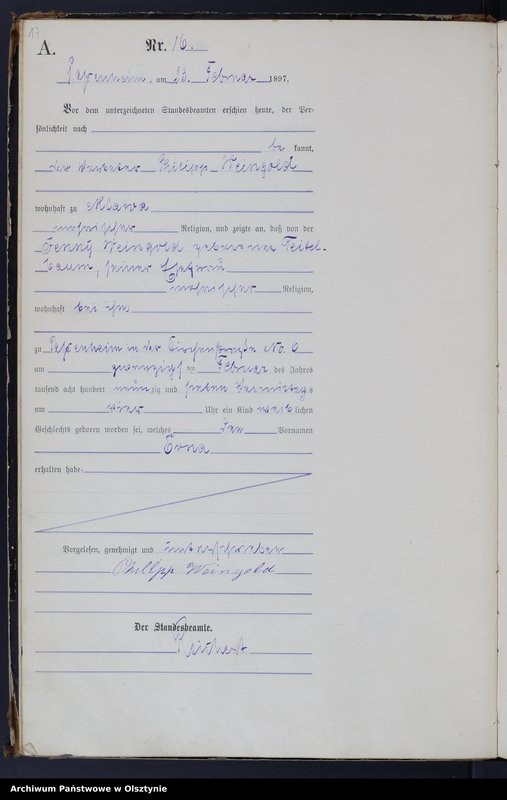 17
A.
Nr. 16.
am 23. Februar 1897.
Vor dem unterzeichneten Standesbeamten erschien heute, der Per-
sönlichkeit nach
be kannt,
der Philipp Weingold
wohnhaft zu Mlawa
mosaischer Religion, und zeigte an, daß von der
Jenny Weingold geborenen Teitel-
baum, seiner Ehefrau
mosaischer Religion,
wohnhaft bei ihm
zu in der No.
am zwanzigsten Februar des Jahres
tausend acht hundert neunzig und sieben Vormittags
um vier Uhr ein Kind weiblichen
Geschlechts geboren worden sei, welches den Vornamen
Erna
erhalten habe.
Vorgelesen, genehmigt und unterschrieben
Philipp Weingold
Der Standesbeamte.
Archiwum Państwowe w Olsztynie